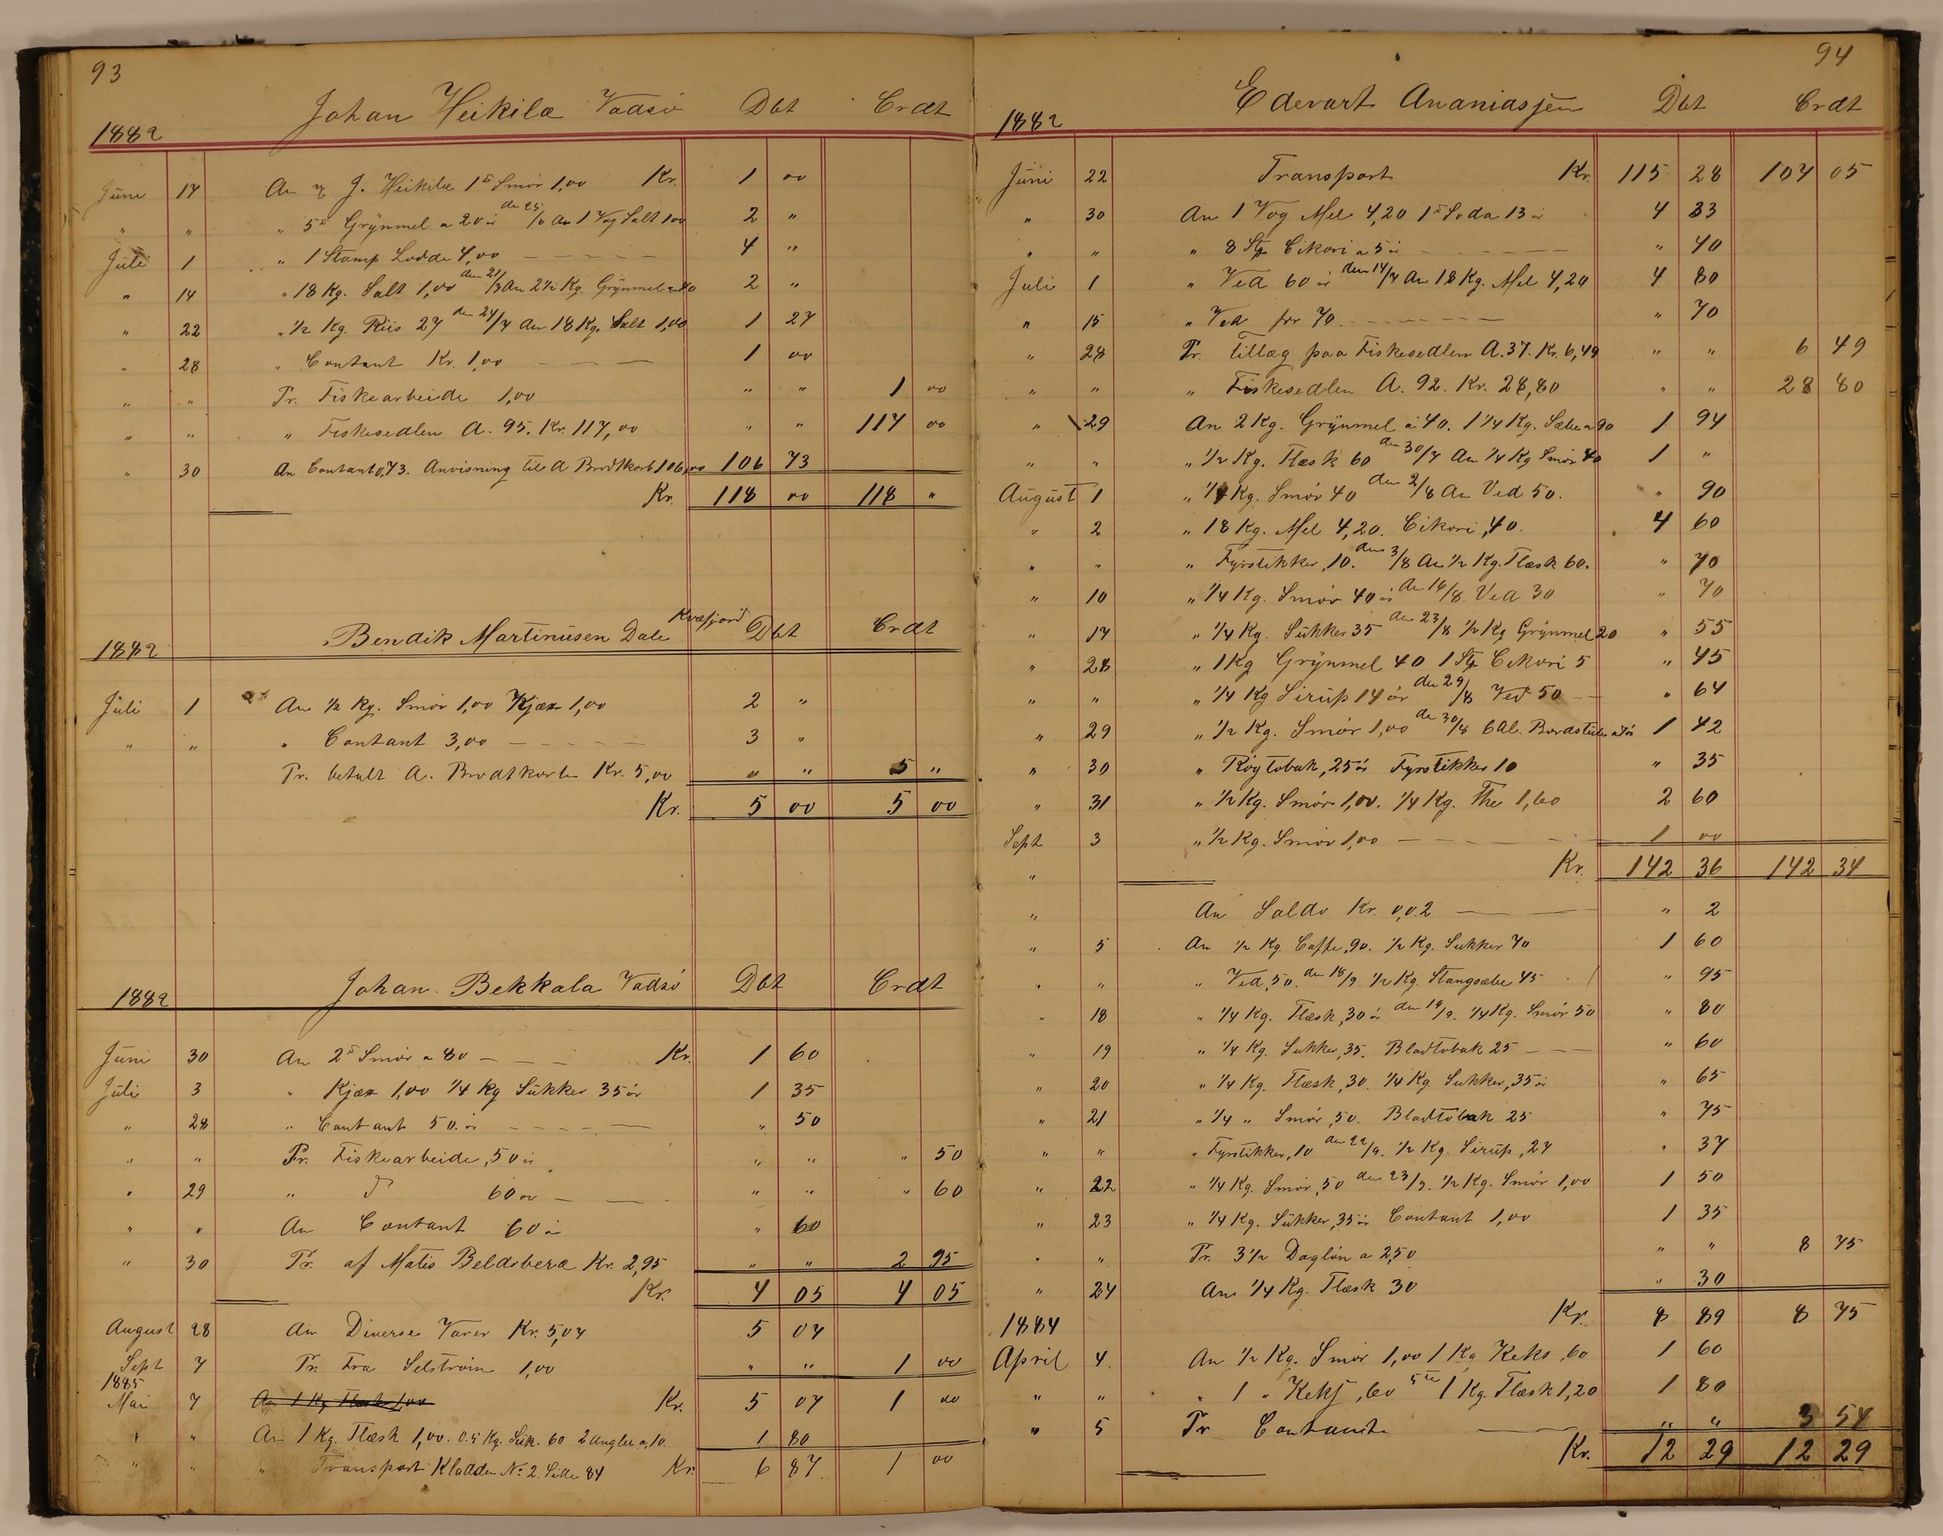 93
Johan Heikilæ Vadsö Dbt Crdt
1882
Juni 17 An J. Heikilæ 1 Smör 1,00 Kr. 1 00
" " " 5 Grynmel a 20 ör den 25/6 An 1 Vog Salt 1 00 2 "
Juli 1 " 1 Stamp Lodde 4,00 4 "
" 14 " 18 Kg. Salt 1,00 den 21/7 An 2½ Kg. Grynmel a 40 2 "
" 22 " ½ Kg. Riis 27 den 24/7 An 18 Kg. Salt 1,00 1 27
" 28 " Contant Kr. 1,00 1 00
" " Pr. Fiskearbeide 1,00 " " 1 00
" " " Fiskesedlen A. 95. Kr. 117,00 " " 117 00
" 30 An Contant 0,73. Anvisning til A Brodtkorb 106,00 106 73
Kr. 118 00 118 "
1882 Bendik Martinusen Dale Kvæfjord Dbt Crdt
Juli 1 An ½ Kg. Smör 1,00 Kjæx 1,00 2 "
" " " Contant 3,00 3 "
Pr. betalt A. Brodtkorb Kr. 5,00 " " 5 "
Kr. 5 00 5 00
1882 Johan Bekkala Vadsö Dbt Crdt
Juni 30 An 2 Smör a 80 Kr. 1 60
Juli 3 " Kjæx 1,00 ¼ Kg Sukker 35 ör 1 35
" 28 " Contant 50 ör " 50
" " Pr. Fiskearbeide, 50 ör " " " 50
" 29 " D 60 ör " " " 60
" " An Contant 60 ör " 60
" 30 Pr. af Matis Beldoberæ Kr. 2,95 " " 2 95
Kr. 4 05 4 05
August 28 An Diverse Varer Kr. 5,07 5 07
Sept 7 Pr. Fra Selström 1,00 " " 1 00
1885
Mai 7 An 1 Kg Flæsk 1,00 Kr. 5 07 1 00
" " An 1 Kg. Flæsk 1,00. 0.5 Kg. Suk. 60 2 Angler a 10 1 80
" " " Transport Kladden No 2. Side 84 Kr. 6 87 1 00
94
1882 Edevart Ananiasjen Dbt Crdt
Juni 22 Transport Kr. 115 28 107 05
" 30 An 1 Vog Mel 4,20 1 Soda 13 ör 4 33
" " " 8 Stg Cikori a 5 ör " 40
Juli 1 " Ved 60 ör den 14/7 An 18 Kg. Mel 4,20 4 80
" 15 " Ved for 70 " 70
" 28 Pr. Tillæg paa Fiskesedlen A. 37. Kr. 6,49 " " 6 49
" " " Fiskesedlen A. 92. Kr. 28,80 " " 28 80
" 29 An 2 Kg. Grynmel a 40. 1¼ Kg. Sæbe a 90 1 94
" " " ½ Kg. Flæsk 60 den 30/7 An ¼ Kg Smör 40 1 "
August 1 " ¼ Kg. Smör 40 den 2/8 An Ved 50. " 90
" 2 " 18 Kg. Mel 4,20. Cikori, 40. 4 60
" " " Fyrstikker, 10. den 3/8 An ½ Kg. Flæsk 60. " 70
" 10 " ¼ Kg. Smör 40 ör den 16/8. Ved 30 " 70
" 17 " ¼ Kg. Sukker 35 den 23/8 ½ Kg Grynmel 20 " 55
" 28 " 1 Kg Grynmel 40 1 Stg Cikori 5 " 45
" " " ¼ Kg Sirup 14 ör den 29/8 Ved 50 " 64
" 29 " ½ Kg. Smör 1,00 den 30/8 6 Al. Bordstuber a 7 ör 1 42
" 30 " Rögtobak, 25 ör Fyrstikker 10 " 35
" 31 " ½ Kg. Smör 1,00. ¼ Kg. The 1,60 2 60
Sept 3 " ½ Kg. Smör 1,00 1 00
" Kr. 142 36 142 34
" An Saldo Kr. 0,02 " 2
" 5 An ½ Kg Caffe, 90. ½ Kg. Sukker 70 1 60
" " " Ved, 50. den 18/9. ½ Kg. Stangsæbe 45 " 95
" 18 " ¼ Kg. Flæsk, 30 ör den 19/9. ¼ Kg. Smör 50 " 80
" 19 " ¼ Kg. Sukker, 35. Bladtobak 25 " 60
" 20 " ¼ Kg. Flæsk, 30. ¼ Kg. Sukker, 35 ör " 65
" 21 " ¼ " Smör, 50. Bladtobak 25 " 75
" " " Fyrstikker, 10 den 22/9. ½ Kg. Sirup, 27 " 37
" 22 " ¼ Kg. Smör, 50 den 23/9. ½ Kg. Smör 1,00 1 50
" 23 " ¼ Kg. Sukker, 35 ör Contant 1,00 1 35
" " Pr. 3½ Daglön a 2,50 " " 8 75
" 24 An ¼ Kg. Flæsk 30 " 30
1884 Kr. 8 89 8 75
April 4. An ½ Kg. Smör 1,00 1 Kg Keks, 60 1 60
" " " 1 " Keks, 60 5te 1 Kg. Flæsk 1,20 1 80
" 5 Pr Contant " " 3 54
Kr. 12 29 12 29